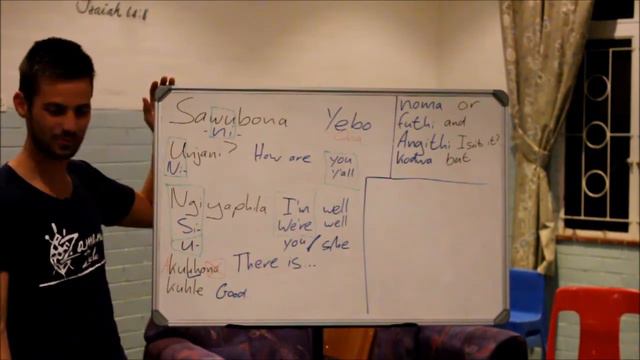 Isaiah 61:8
Sawubona Yebo
-ni-
Unjani? How are you
Ni- y'all
Ngiyaphila I'm well
Si- We're well
U- you/she
Akukhona There is...
kuhle Good
noma or
futhi and
Angithi Isn't it?
kodwa but